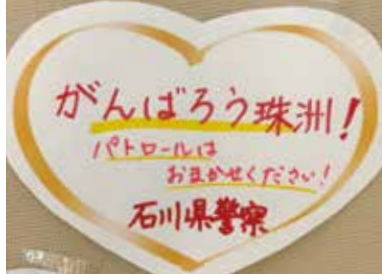 がんばろう珠洲!
パトロールは
おまかせください!
石川県警察